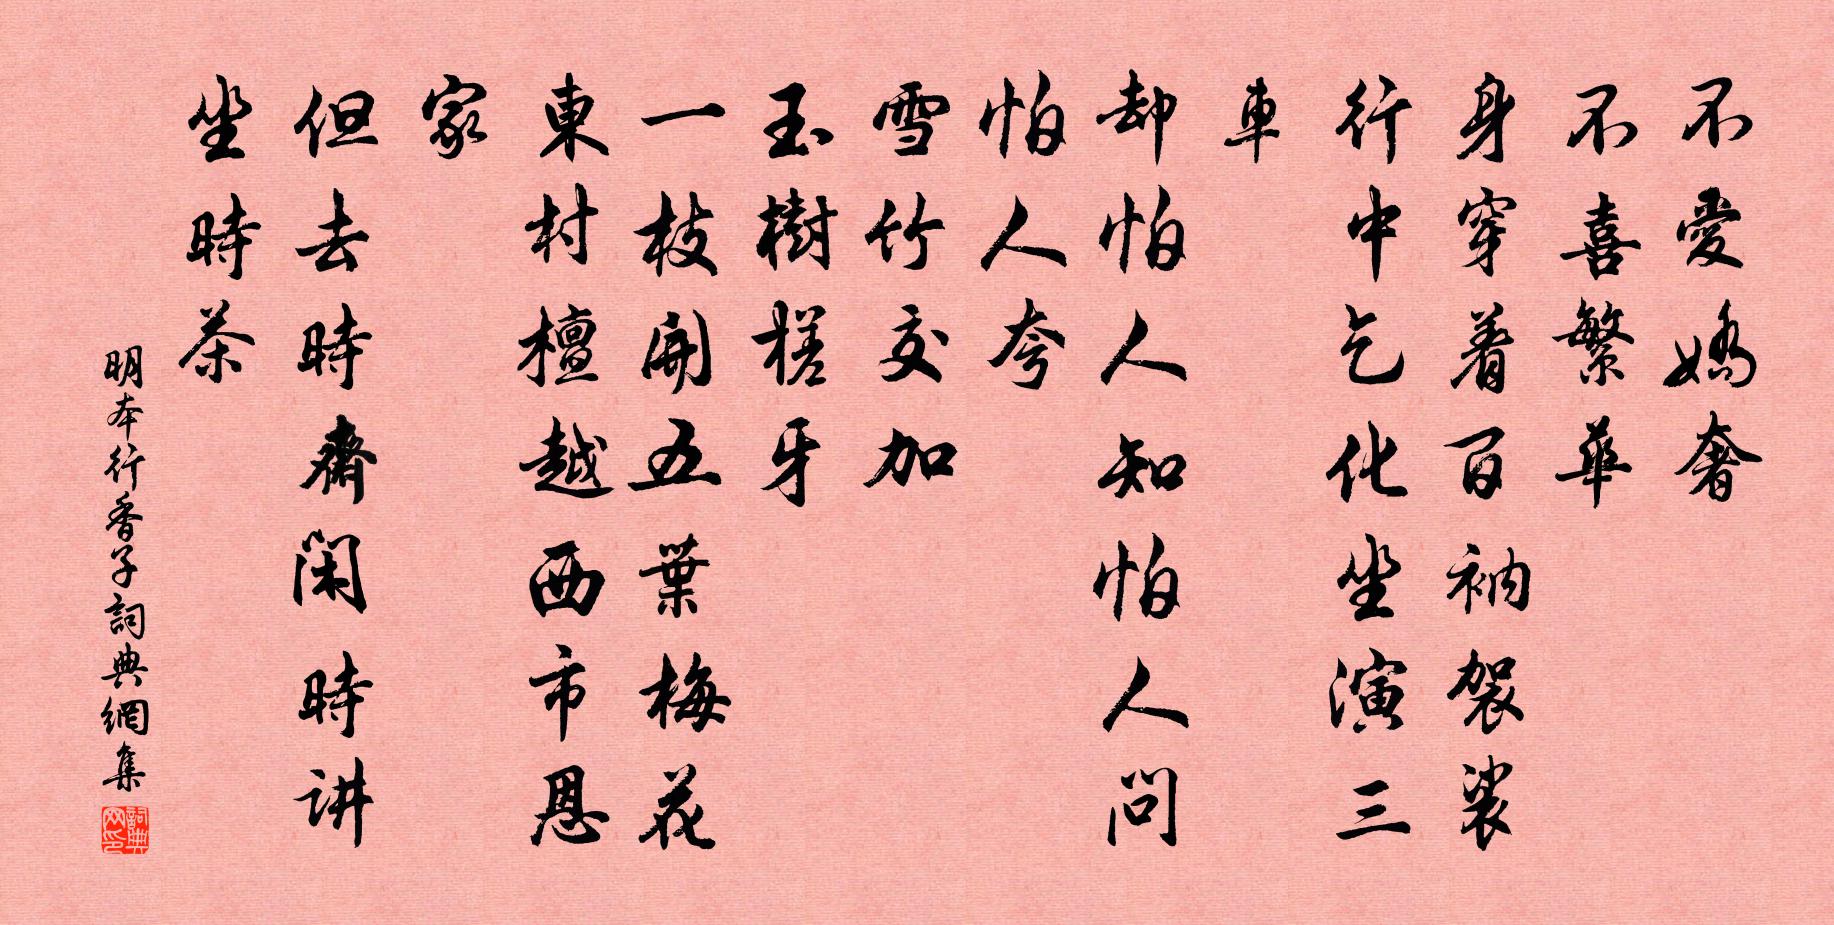 不愛嬌奢
不喜繁華
身穿着百衲袈裟
行中乞化坐演三
車
却怕人知怕人問
怕人夸
雪竹交加
玉樹槎牙
一枝開五葉梅花
東村檀越西市恩
家
但去時齋閑時讲
坐時茶
明本行香子詞典網集
詞典网印